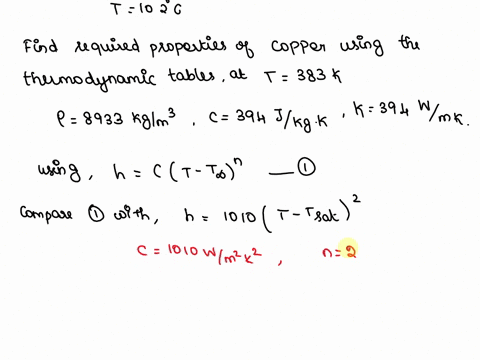 T = 102°C
Find required properties of copper using the
thermodynamic tables, at T = 383 K
ρ = 8933 kg/m³, c = 394 J/kg·K, K = 394 W/mK.
using, h = C(T - T∞)ⁿ —①
Compare ① with, h = 1010(T - Tsat)²
C = 1010 W/m²K², n = 2